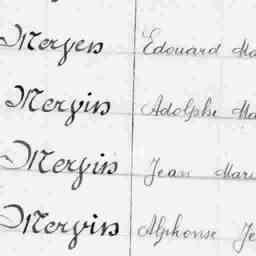 Meryen Edouard Ma
Mervin Adolphe Ma
Mervin Jean Mari
Mervin Alphonse Je